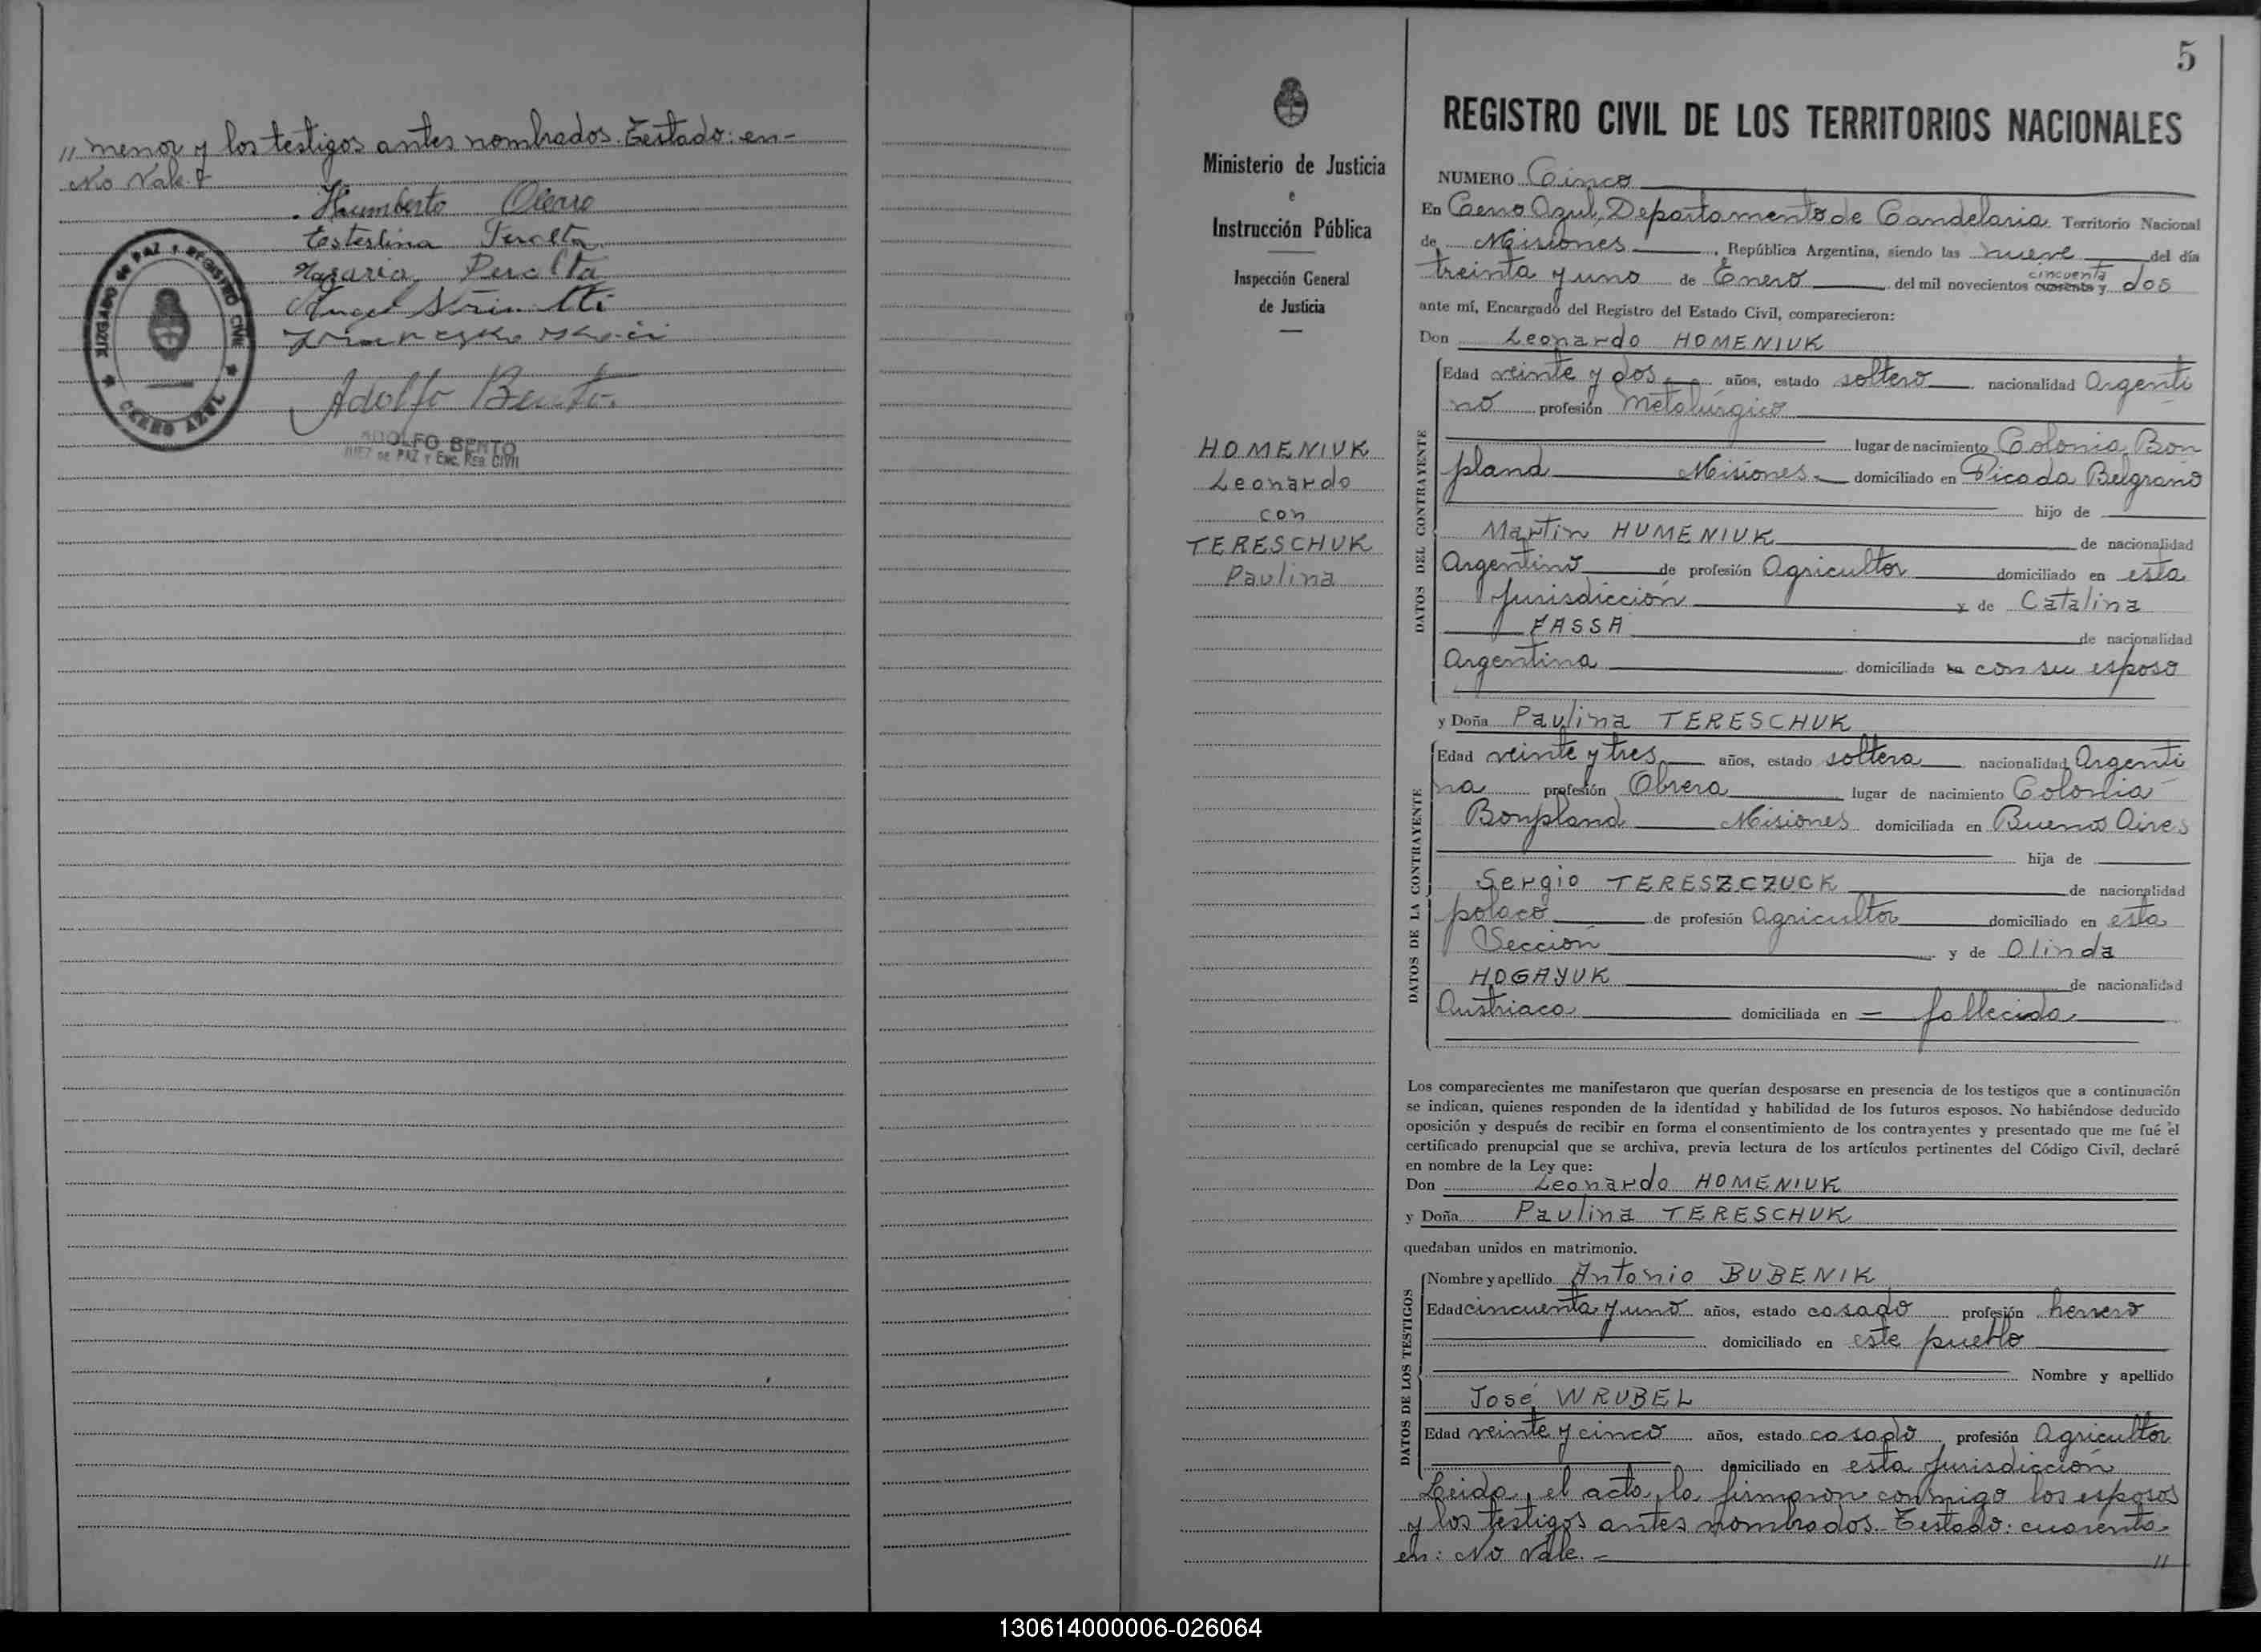 ,, menor y los testigos antes nombrados. Testado: en-
No Vale.
Humberto
Esterlina Peralta
Nazaria Peralta
Angel
Adolfo Bento
ADOLFO BENTO
JUEZ DE PAZ Y ENC. REG. CIVIL
JUZGADO DE PAZ Y REGISTRO CIVIL
CERRO AZUL
Ministerio de Justicia
e
Instrucción Pública
Inspección General
de Justicia
HOMENIUK
Leonardo
con
TERESCHUK
Paulina
5
REGISTRO CIVIL DE LOS TERRITORIOS NACIONALES
NUMERO Cinco
En Cerro Azul, Departamento de Candelaria Territorio Nacional
de Misiones, República Argentina, siendo las nueve del día
treinta y uno de Enero del mil novecientos cuarenta y cincuenta dos
ante mí, Encargado del Registro del Estado Civil, comparecieron:
Don Leonardo HOMENIUK
DATOS DEL CONTRAYENTE
Edad veinte y dos años, estado soltero nacionalidad Argenti
no profesión Metalúrgico
lugar de nacimiento Colonia Bon
pland Misiones domiciliado en Picada Belgrano
hijo de
Martin HUMENIUK de nacionalidad
Argentino de profesión Agricultor domiciliado en esta
Jurisdicción y de Catalina
FASSA de nacionalidad
Argentina domiciliada en con su esposo
y Doña Paulina TERESCHUK
DATOS DE LA CONTRAYENTE
Edad veinte y tres años, estado soltera nacionalidad Argenti
na profesión Obrera lugar de nacimiento Colonia
Bonpland Misiones domiciliada en Buenos Aires
hija de
Sergio TERESZCZUCK de nacionalidad
polaco de profesión agricultor domiciliado en esta
Sección y de Olinda
HOGAYUK de nacionalidad
Austriaca domiciliada en - fallecida
Los comparecientes me manifestaron que querían desposarse en presencia de los testigos que a continuación
se indican, quienes responden de la identidad y habilidad de los futuros esposos. No habiéndose deducido
oposición y después de recibir en forma el consentimiento de los contrayentes y presentado que me fué el
certificado prenupcial que se archiva, previa lectura de los artículos pertinentes del Código Civil, declaré
en nombre de la Ley que:
Don Leonardo HOMENIUK
y Doña Paulina TERESCHUK
quedaban unidos en matrimonio.
DATOS DE LOS TESTIGOS
Nombre y apellido Antonio BUBENIK
Edad cincuenta y uno años, estado casado profesión herrero
domiciliado en este pueblo
Nombre y apellido
José WRUBEL
Edad veinte y cinco años, estado casado profesión Agricultor
domiciliado en esta Jurisdicción
Leida el acta, la firmaron conmigo los esposos
y los testigos antes nombrados. Testado: cuarenta-
en: No Vale. - ,,
130614000006-026064